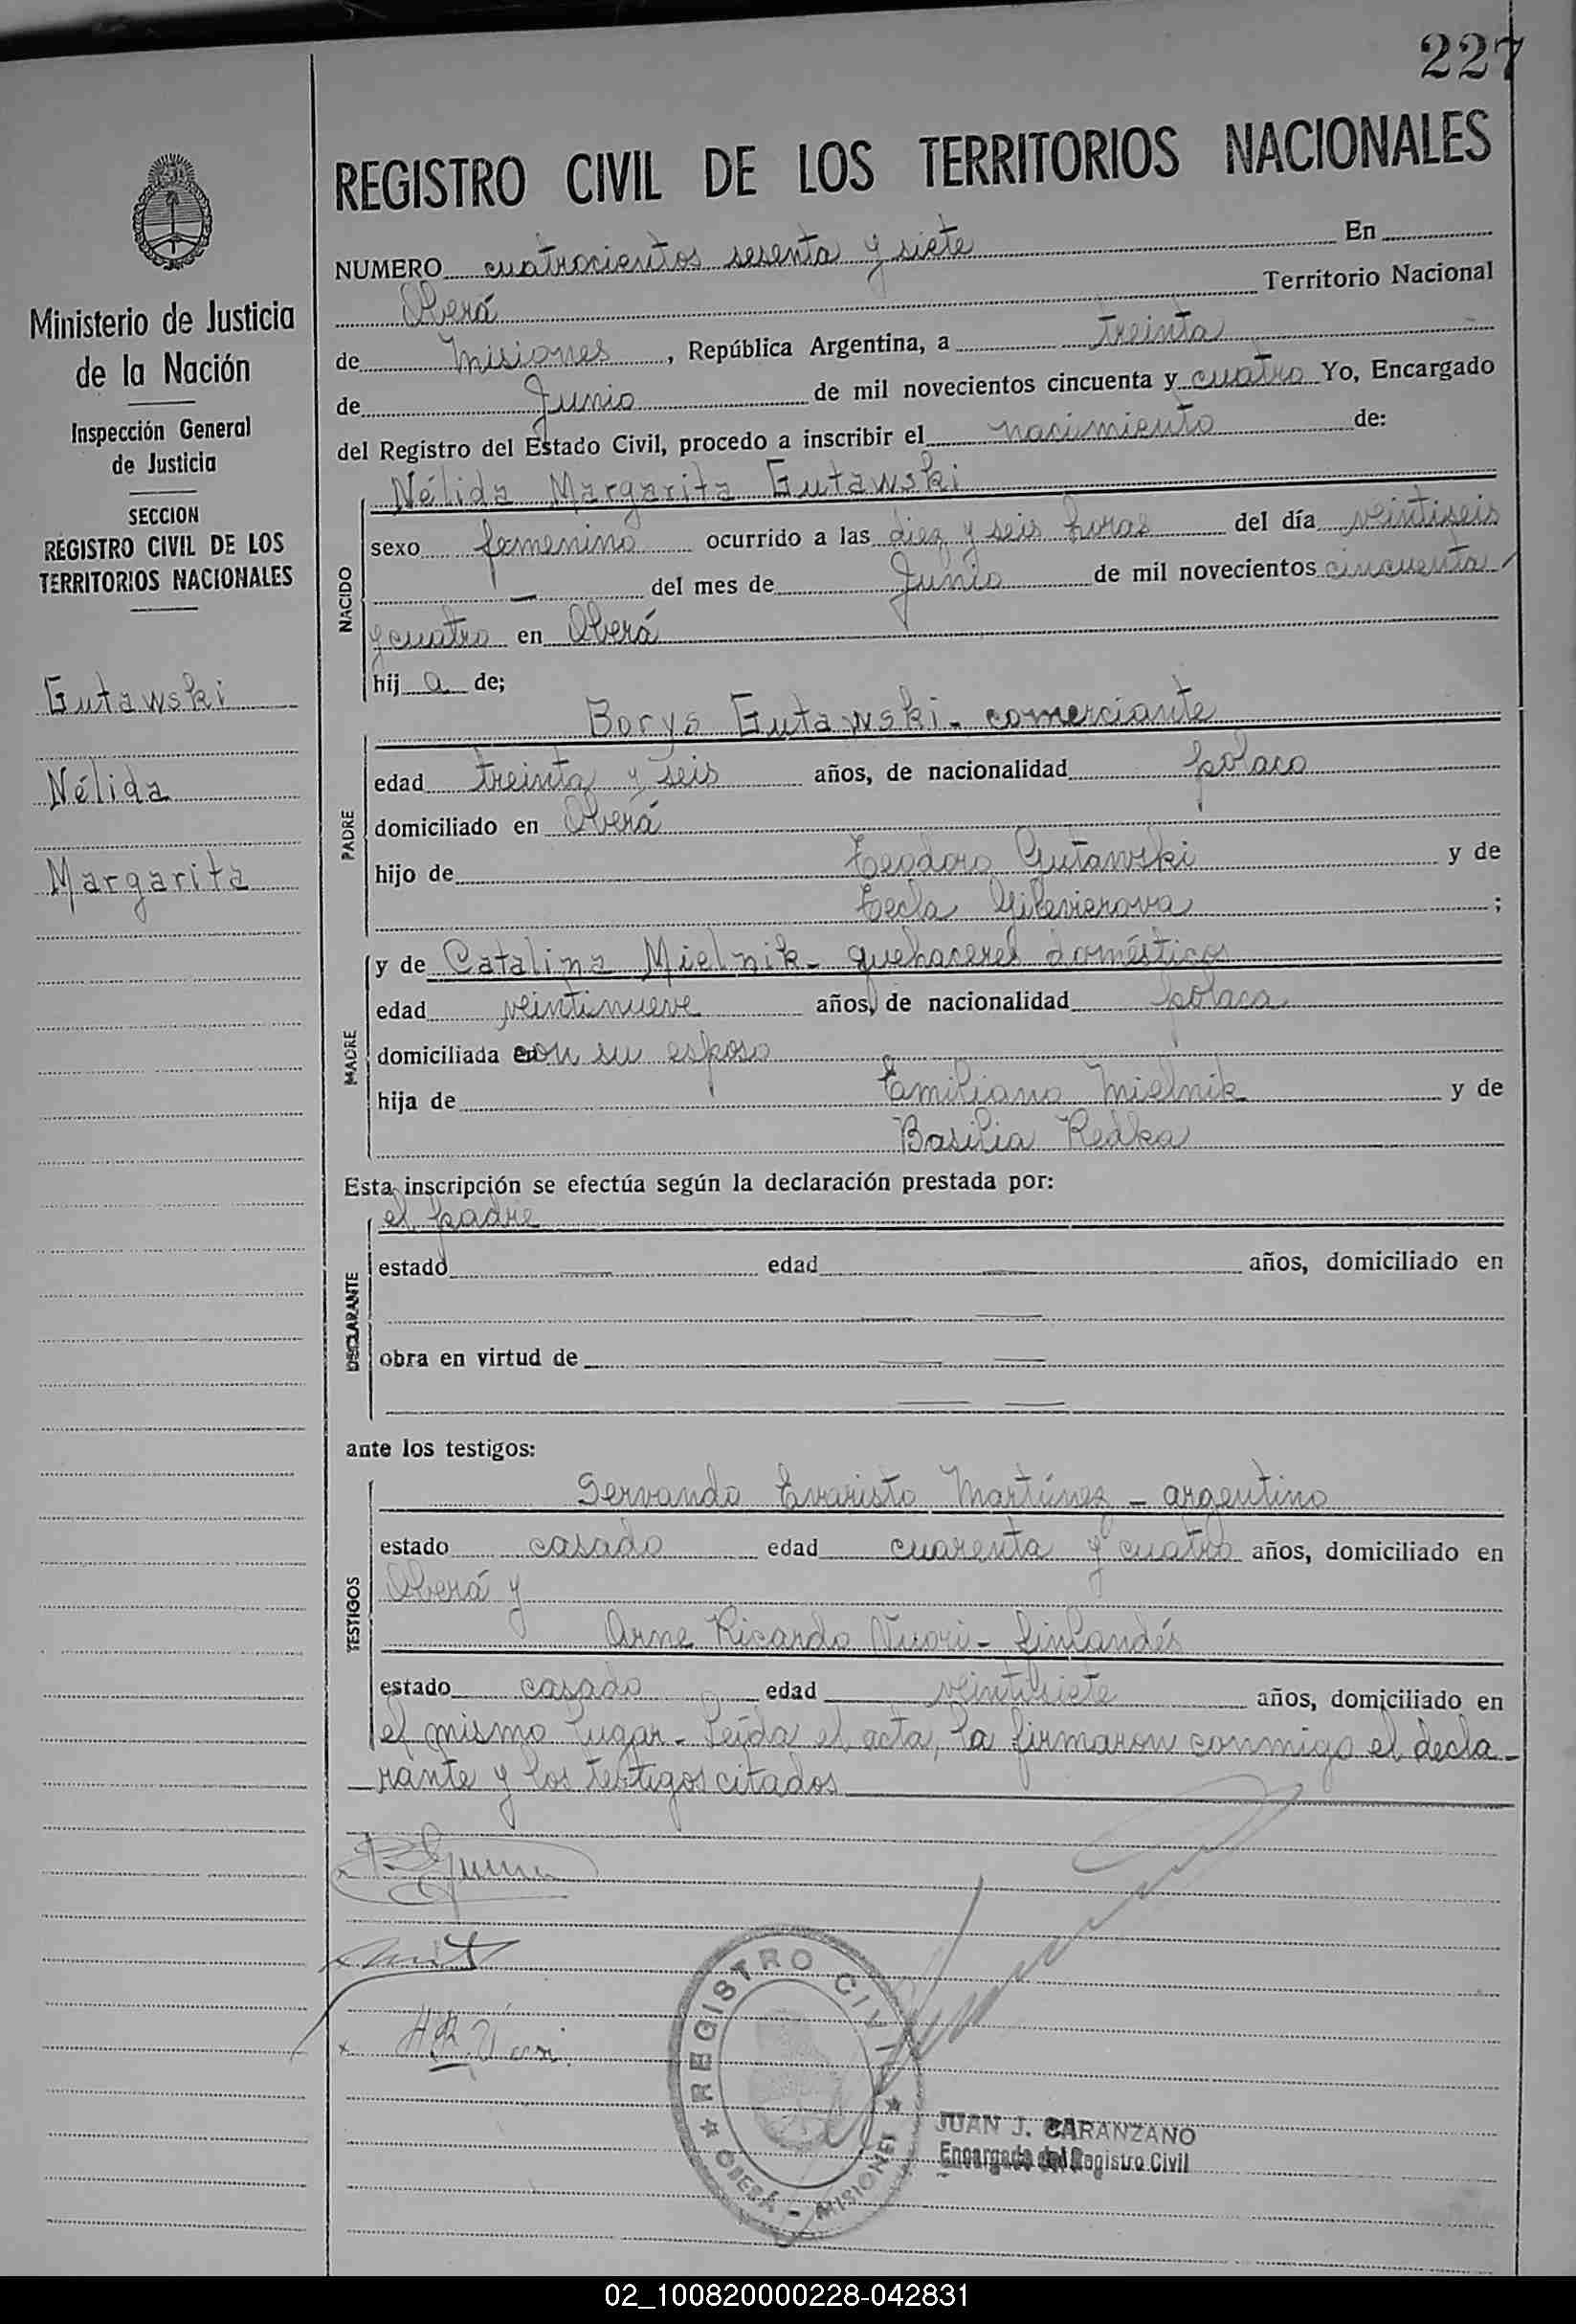 227
REGISTRO CIVIL DE LOS TERRITORIOS NACIONALES
Ministerio de Justicia
de la Nación
Inspección General
de Justicia
SECCION
REGISTRO CIVIL DE LOS
TERRITORIOS NACIONALES
Gutawski
Nélida
Margarita
NUMERO cuatrocientos sesenta y siete En
Oberá Territorio Nacional
de Misiones, República Argentina, a treinta
de Junio de mil novecientos cincuenta y cuatro Yo, Encargado
del Registro del Estado Civil, procedo a inscribir el nacimiento de:
NACIDO
Nélida Margarita Gutawski
sexo femenino ocurrido a las diez y seis horas del día veintiseis
— del mes de Junio de mil novecientos cincuenta
y cuatro en Oberá
hij a de;
PADRE
Borys Gutawski - comerciante
edad treinta y seis años, de nacionalidad polaco
domiciliado en Oberá
hijo de Teodoro Gutawski y de
Tecla ;
MADRE
y de Catalina Mielnik - quehaceres domésticos
edad veintinueve años, de nacionalidad polaca
domiciliada en con su esposo
hija de Emiliano Mielnik y de
Basilia Redka
Esta inscripción se efectúa según la declaración prestada por:
DECLARANTE
el padre
estado — edad — años, domiciliado en
— —
obra en virtud de — —
— —
ante los testigos:
TESTIGOS
Servando Evaristo Martínez - argentino
estado casado edad cuarenta y cuatro años, domiciliado en
Oberá y
Arne Ricardo Nuori - finlandés
estado casado edad veintisiete años, domiciliado en
el mismo lugar - Leída el acta, la firmaron conmigo el decla-
rante y los testigos citados
REGISTRO CIVIL
OBERÁ - MISIONES
JUAN J. CARANZANO
Encargado del Registro Civil
02_100820000228-042831